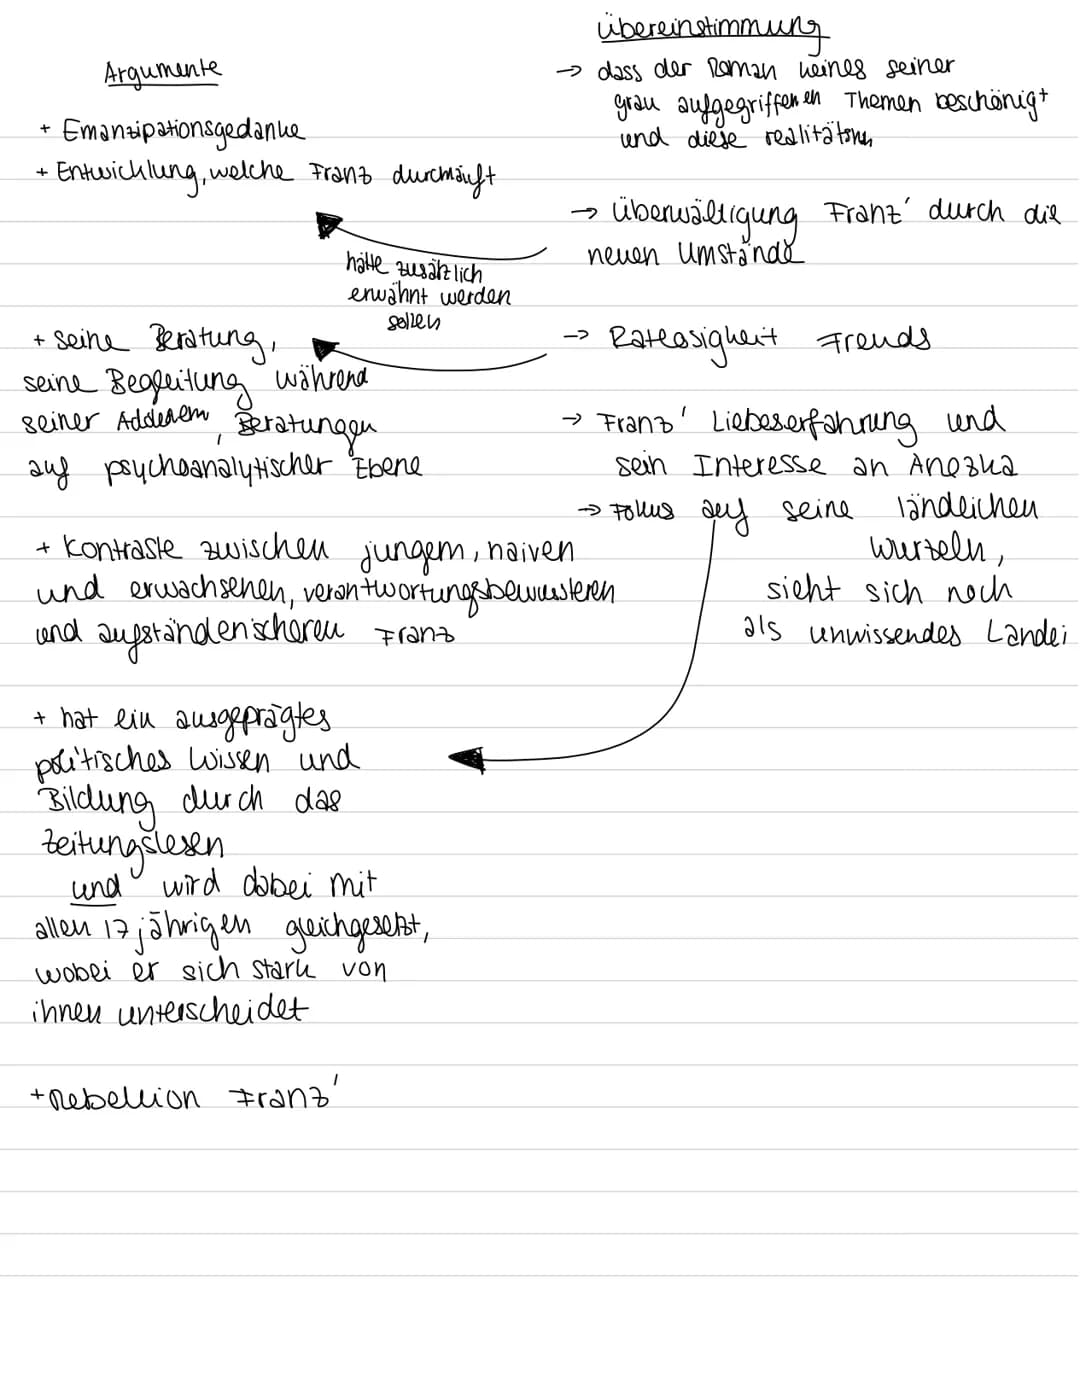 Argumente
+ Emanzipationsgedanke
+ Entwicklung, welche Franz durchläuft
hätte zusätzlich
erwähnt werden
sollen
+ seine Beratung,
seine Begleitung während
seiner, Beratungen
auf psychoanalytischer Ebene
+ Kontraste zwischen jungem, naiven
und erwachsenen, verantwortungsbewussteren
und Franz
+ hat ein ausgeprägtes
politisches Wissen und
Bildung durch das
Zeitungslesen
und wird dabei mit
allen 17 jährigen gleichgesetzt,
wobei er sich stark von
ihnen unterscheidet
+ Rebellion Franz'
Übereinstimmung
→ dass der Roman keines seiner
grau aufgegriffenen Themen beschönigt
und diese
→ Überwältigung Franz' durch die
neuen Umstände
→ Ratlosigkeit Freuds
→ Franz' Liebeserfahrung und
sein Interesse an Anezka
→ Fokus auf seine ländlichen
Wurzeln,
sieht sich noch
als unwissendes Landei